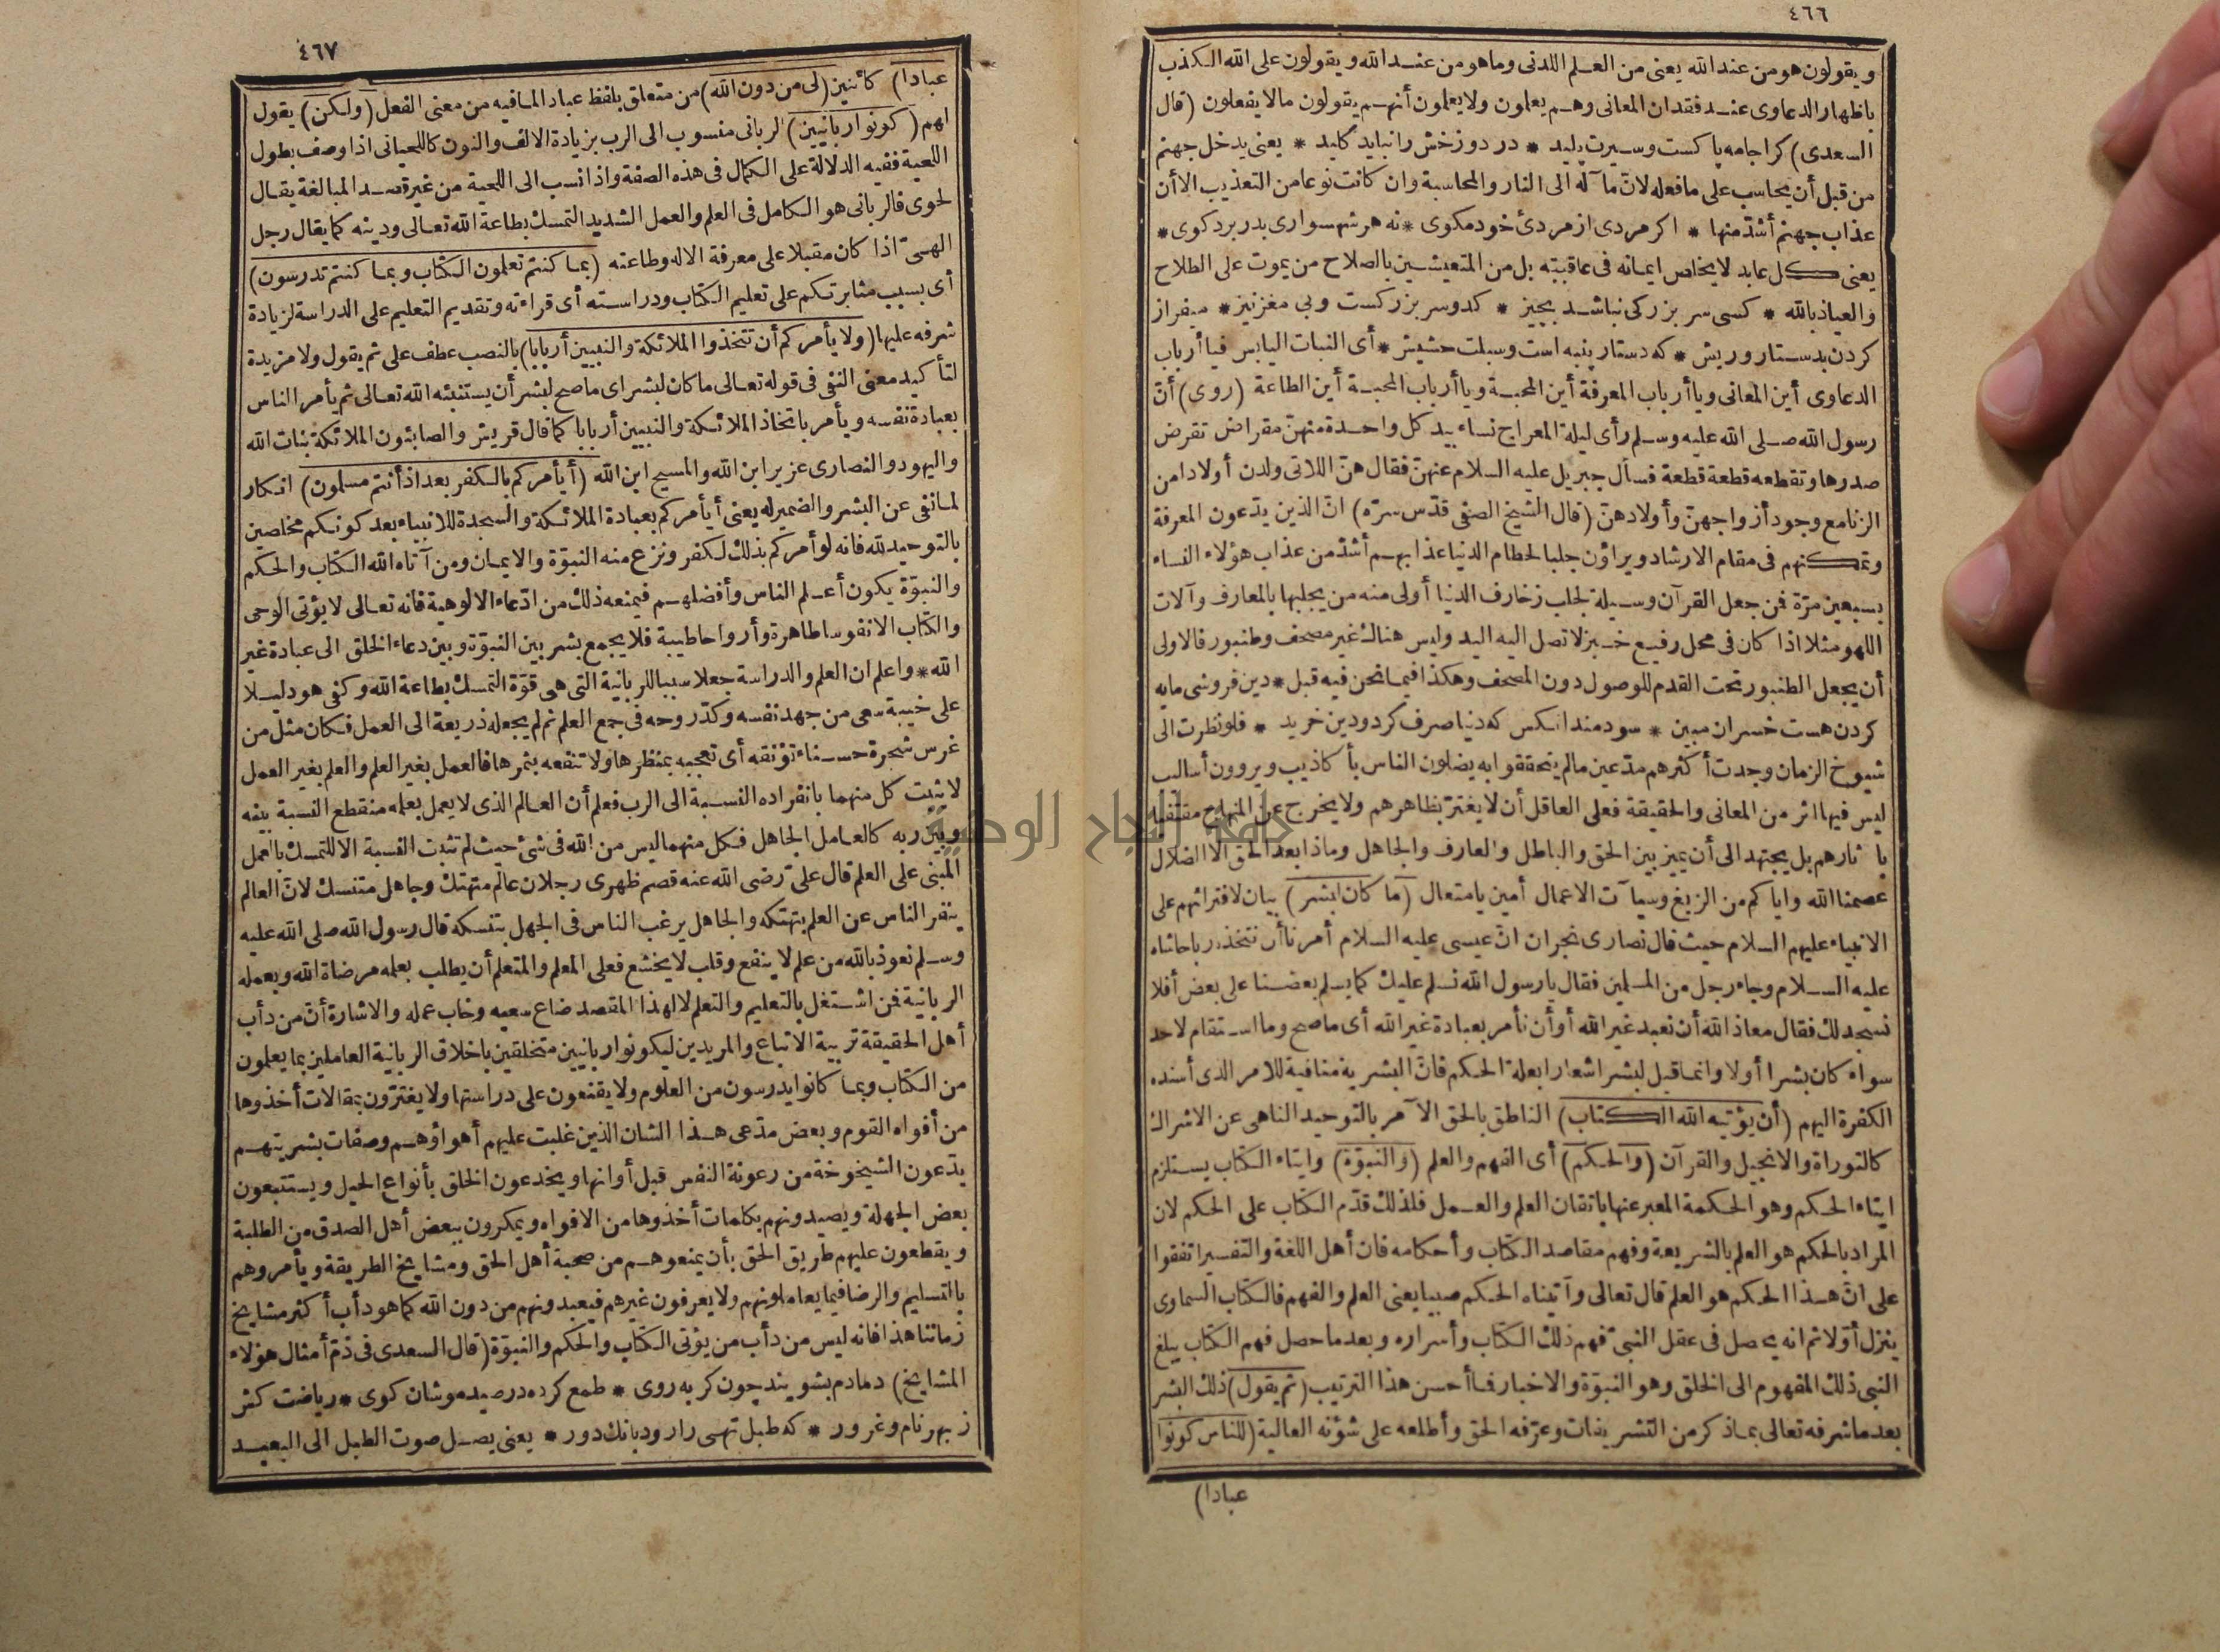 ٤٦٦
ويقولون هو من عند الله يعنى من العلم اللدنى وما هو من عند الله ويقولون على الله الكذب
باظهار الدعاوى عند فقدان المعانى وهم يعلمون ولا يعلمون أنهم يقولون ما لا يفعلون (قال
السعدى) كرا جامه پاكست وسيرت پليد * در دوزخش را نبايد كليد * يعنى يدخل جهنم
من قبل أن يحاسب على ما فعله لان مآله الى النار والمحاسبة وان كانت نوعا من التعذيب الا أن
عذاب جهنم أشد منها * اكر مردى از مردئ خود مكوى * نه هر شهسوارى بدر برد كوى *
يعنى كل عابد لا يخلص ايمانه فى عاقبته بل من المتعيشين بالصلاح من يموت على الطلاح
والعياذ بالله * كسى سر بزركى نباشد بچيز * كدو سر بزركست وبى مغز نيز * ميفراز
كردن بدستار وريش * كه دستار پنبه است وسبلت حشيش * أى النبات اليابس فيا أرباب
الدعاوى أين المعانى ويا أرباب المعرفة أين المحبة ويا أرباب المحبة أين الطاعة (روى) أن
رسول الله صلى الله عليه وسلم رأى ليلة المعراج نساء بيد كل واحدة منهن مقراض تقرض
صدرها وتقطعه قطعة قطعة فسأل جبريل عليه السلام عنهن فقال هن اللاتى ولدن أولادا من
الزنا مع وجود أزواجهن وأولادهن (قال الشيخ الصفى قدس سره) ان الذين يدعون المعرفة
وتمكنهم فى مقام الارشاد ويراؤن جلبا لحطام الدنيا عذابهم أشد من عذاب هؤلاء النساء
بسبعين مرة فمن جعل القرآن وسيلة لجلب زخارف الدنيا أولى منه من يجلبها بالمعازف وآلات
اللهو مثلا اذا كان فى محل رفيع خبز لا تصل اليه اليد وليس هناك غير مصحف وطنبور فالاولى
أن يجعل الطنبور تحت القدم للوصول دون المصحف وهكذا فيما نحن فيه قيل * دين فروشى مايه
كردن هست خسران مبين * سودمند انكس كه دنيا صرف كرد ودين خريد * فلو نظرت الى
شيوخ الزمان وجدت أكثرهم مدعين ما لم يتحققوا به يضلون الناس بأكاذيب ويروون أساليب
ليس فيها اثر من المعانى والحقيقة فعلى العاقل أن لا يغتر بظاهرهم ولا يخرج عن المنهاج مقتفيا
بآثارهم بل يجتهد الى أن يميز بين الحق والباطل والعارف والجاهل وماذا بعد الحق الا الضلال
عصمنا الله واياكم من الزيغ وسيآت الاعمال أمين يا متعال (ما كان لبشر) بيان لافترائهم على
الانبياء عليهم السلام حيث قال نصارى نجران ان عيسى عليه السلام أمرنا أن نتخذه ربا حاشاه
عليه السلام وجاء رجل من المسلمين فقال يا رسول الله نسلم عليك كما يسلم بعضنا على بعض أفلا
نسجد لك فقال معاذ الله أن نعبد غير الله أو أن نأمر بعبادة غير الله أى ما صح وما استقام لاحد
سواء كان بشرا أو لا وانما قيل لبشر اشعارا بعلة الحكم فان البشرية منافية للامر الذى أسنده
الكفرة اليهم (أن يؤتيه الله الكتاب) الناطق بالحق الآمر بالتوحيد الناهى عن الاشراك
كالتوراة والانجيل والقرآن (والحكم) أى الفهم والعلم (والنبوة) وايتاء الكتاب يستلزم
ايتاء الحكم وهو الحكمة المعبر عنها باتقان العلم والعمل فلذلك قدم الكتاب على الحكم لان
المراد بالحكم هو العلم بالشريعة وفهم مقاصد الكتاب وأحكامه فان أهل اللغة والتفسير اتفقوا
على ان هذا الحكم هو العلم قال تعالى وآتيناه الحكم صبيا يعنى العلم والفهم فالكتاب السماوى
ينزل أولا ثم انه يحصل فى عقل النبى فهم ذلك الكتاب وأسراره وبعد ما حصل فهم الكتاب يبلغ
النبى ذلك المفهوم الى الخلق وهو النبوة والاخبار فما أحسن هذا الترتيب (ثم يقول) ذلك البشر
بعد ما شرفه تعالى بما ذكر من التشريفات وعرفه الحق وأطلعه على شؤنه العالية (للناس كونوا
عبادا)
٤٦٧
عبادا) كائنين (لى من دون الله) من متعلق بلفظ عبادا لما فيه من معنى الفعل (ولكن) يقول
لهم (كونوا ربانيين) الربانى منسوب الى الرب بزيادة الالف والنون كاللحيانى اذا وصف بطول
اللحية ففيه الدلالة على الكمال فى هذه الصفة واذا نسب الى اللحية من غير قصد المبالغة يقال
لحوى فالربانى هو الكامل فى العلم والعمل الشديد التمسك بطاعة الله تعالى ودينه كما يقال رجل
الهى اذا كان مقبلا على معرفة الاله وطاعته (بما كنتم تعلمون الكتاب وبما كنتم تدرسون)
أى بسبب مثابرتكم على تعليم الكتاب ودراسته أى قراءته وتقديم التعليم على الدراسة لزيادة
شرفه عليها (ولا يأمركم أن تتخذوا الملائكة والنبيين أربابا) بالنصب عطف على ثم يقول ولا مزيدة
لتأكيد معنى النفى فى قوله تعالى ما كان لبشر اى ما صح لبشر أن يستنبئه الله تعالى ثم يأمر الناس
بعبادة نفسه ويأمر باتخاذ الملائكة والنبيين أربابا كما قال قريش والصابئون الملائكة بنات الله
واليهود والنصارى عزير ابن الله والمسيح ابن الله (أيأمركم بالكفر بعد اذ أنتم مسلمون) انكار
لما نفى عن البشر والضمير له يعنى أيأمركم بعبادة الملائكة والسجدة للانبياء بعد كونكم مخلصين
بالتوحيد لله فانه لو أمركم بذلك لكفر ونزع منه النبوة والايمان ومن آتاه الله الكتاب والحكم
والنبوة يكون أعلم الناس وأفضلهم فيمنعه ذلك من ادعاء الالوهية فانه تعالى لا يؤتى الوحى
والكتاب الا نفوسا طاهرة وأرواحا طيبة فلا يجمع بشر بين النبوة وبين دعاء الخلق الى عبادة غير
الله * واعلم ان العلم والدراسة جعلا سببا للربانية التى هى قوة التمسك بطاعة الله وكفى هو دليلا
على خيبة سعى من جهد نفسه وكد روحه فى جمع العلم ثم لم يجعله ذريعة الى العمل فكان مثل من
غرس شجرة حسناء تؤنقه أى تعجبه بمنظرها ولا تنفعه بثمرها فالعمل بغير العلم والعلم بغير العمل
لا يثبت كل منهما بانفراده النسبة الى الرب فعلم أن العالم الذى لا يعمل بعلمه منقطع النسبة بينه
وبين ربه كالعامل الجاهل فكل منهما ليس من الله فى شئ حيث لم تثبت النسبة الا للتمسك بالعمل
المبنى على العلم قال على رضى الله عنه قصم ظهرى رجلان عالم متهتك وجاهل متنسك لان العالم
ينفر الناس عن العلم بتهتكه والجاهل يرغب الناس فى الجهل بتنسكه قال رسول الله صلى الله عليه
وسلم نعوذ بالله من علم لا ينفع وقلب لا يخشع فعلى المعلم والمتعلم أن يطلب بعلمه مرضاة الله وبعمله
الربانية فمن اشتغل بالتعليم والتعلم لا لهذا المقصد ضاع سعيه وخاب عمله والاشارة أن من دأب
أهل الحقيقة تربية الاتباع والمريدين ليكونوا ربانيين متخلقين باخلاق الربانية العاملين بما يعلمون
من الكتاب وبما كانوا يدرسون من العلوم ولا يقنعون على دراستها ولا يغترون بمقالات أخذوها
من أفواه القوم وبعض مدعى هذا الشان الذين غلبت عليهم أهواؤهم وصفات بشريتهم
يدعون الشيخوخة من رعونة النفس قبل أوانها ويخدعون الخلق بأنواع الحيل ويستتبعون
بعض الجهلة ويصيدونهم بكلمات أخذوها من الافواه ويمكرون ببعض أهل الصدق من الطلبة
ويقطعون عليهم طريق الحق بأن يمنعوهم من صحبة أهل الحق ومشايخ الطريقة ويأمروهم
بالتسليم والرضا فيما يعاملونهم ولا يعرفون غيرهم فيعبدونهم من دون الله كما هو دأب أكثر مشايخ
زماننا هذا فانه ليس من دأب من يؤتى الكتاب والحكم والنبوة (قال السعدى فى ذم أمثال هؤلاء
المشايخ) دمادم بشويند چون كربه روى * طمع كرده در صيد موشان كوى * رياضت كش
زبهر نام وغرور * كه طبل تهى را رود بانك دور * يعنى يصل صوت الطبل الى البعيد
جامعة النجاح الوطنية